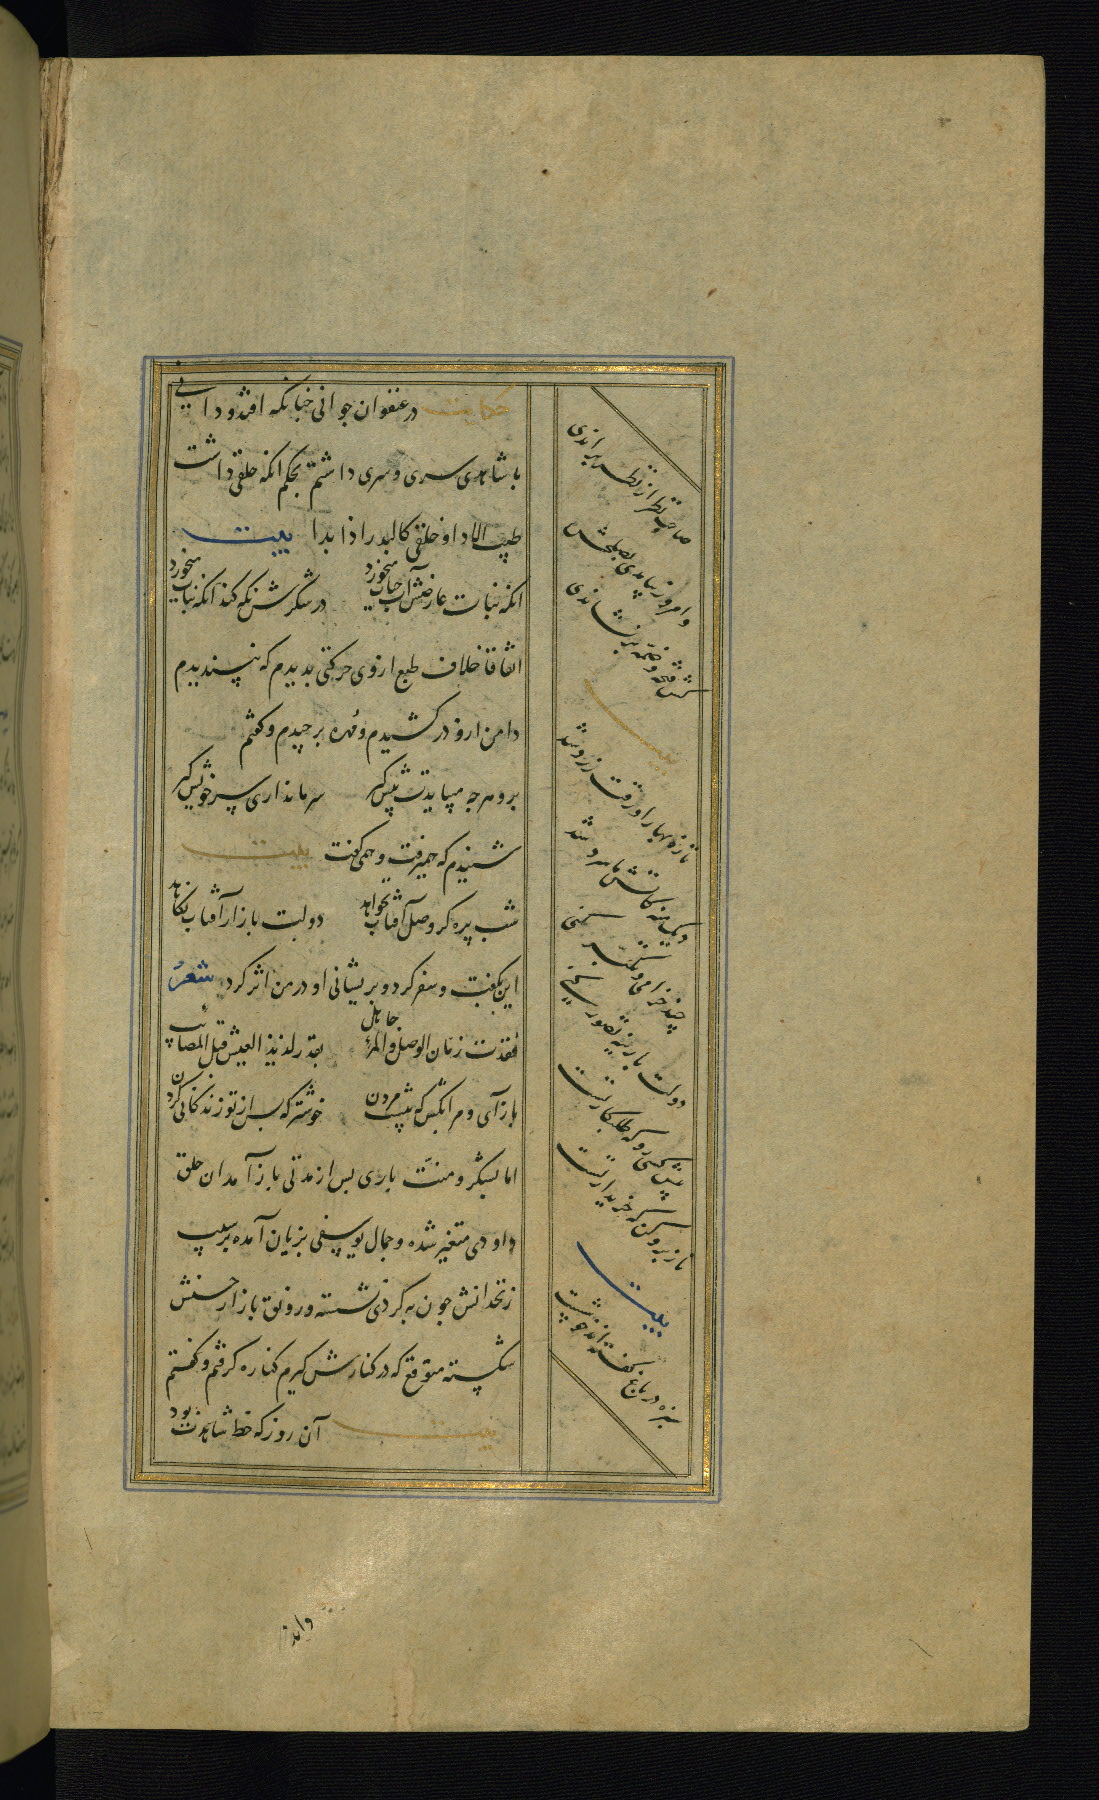 حکایت در عنفوان جوانی خبانکه افتد و دانی
با شاهدی سری و سری داشتم بحکم انکه حلقی داشت
طیب الادا و خلقی کالبدر اذا بدا بیت
انکه نبات عارضش آب حیات میخورد در شکرش نکه کند انکه نبات میخورد
اتفاقا خلاف طبع از وی حرکتی بدیدم که نپسندیدم
دامن ازو در کشیدم و مهره برچیدم و کفتم
برو هرجه میبایدت پیش کیر سر ما نداری سر خویش کیر
شنیدم که همیرفت و همی کفت بیت
شب پره کر وصل آفتاب نخواهد رونق بازار آفتاب نکاهد
این بکفت و سفر کرد و بریشانی او در من اثر کرد شعر
فقدت زمان الوصل والمرء جاهل بقدر لذیذ العیش قبل المصائب
باز آی و مرا بکش که پیشت مردن خوشتر که بس از تو زندکانی کردن
اما بشکر و منت باری بس از مدتی باز آمد ان حلق
داودی متغیر شده و جمال یوسفی بزیان آمده بر سیب
زنخدانش جون به کردی نشسته و رونق بازار حسنش
شکسته متوقع که در کنارش کیرم کناره کرفتم و کفتم
بیت آن روز که خط شاهدت بود
صاحب نظر از نظر براندی
وامروز بیامدی بصلحش
کش فتحه و ضمه بر نشاندی
بیت
تازه بهارا ورقت زرد شد
دیک منه کاتش ما سرد شد
چند خرامی و تکبر کنی
دولت بارینه تصور کنی
پیش کسی رو که طلبکار تست
ناز برو کن که خریدار تست
بیت
سبزه در باغ کفته اند خوشست
داند